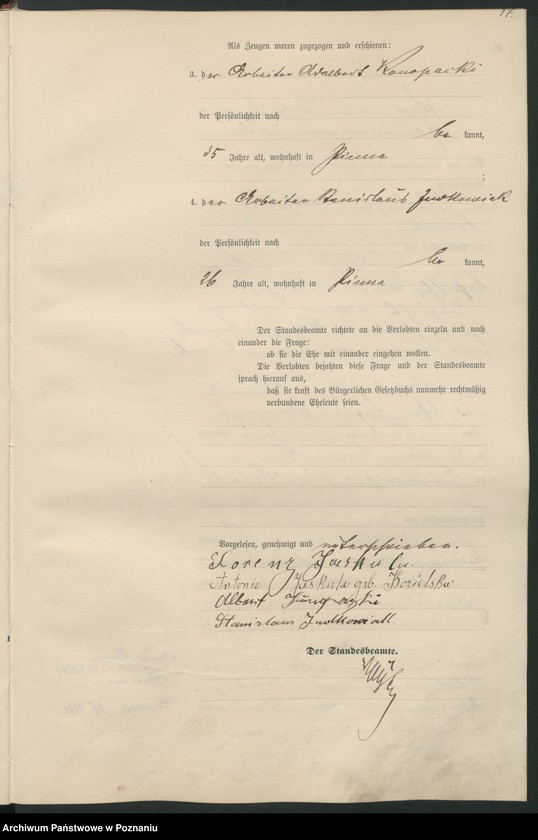 17.
Als Zeugen waren zugezogen und erschienen:
3. der Arbeiter Adalbert Konopacki
der Persönlichkeit nach
be kannt,
35 Jahre alt, wohnhaft in Pinne
;
4. der Arbeiter Stanislaus Judkowiak
der Persönlichkeit nach
be kannt,
26 Jahre alt, wohnhaft in Pinne
Der Standesbeamte richtete an die Verlobten einzeln und nach
einander die Frage:
ob sie die Ehe mit einander eingehen wollen.
Die Verlobten bejahten diese Frage und der Standesbeamte
sprach hierauf aus,
daß sie kraft des Bürgerlichen Gesetzbuchs nunmehr rechtmäßig
verbundene Eheleute seien.
Vorgelesen, genehmigt und unterschrieben.
Lorenz Jaskula
Antonie Jaskula geb. Kozielska
Albert
Stanislaus Judkowiak
Der Standesbeamte.
Archiwum Państwowe w Poznaniu